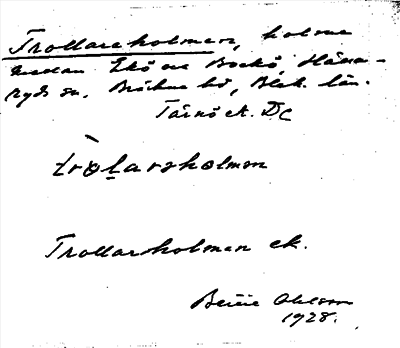 Trollareholmen, holme
medan Ekö o Bockö, Hälla-
ryds sn. Bräkne hd, Blek. län.
Tärnö ek. Dc
trolarsholmen
Trollarholmen ek.
Ohlsson
1928.